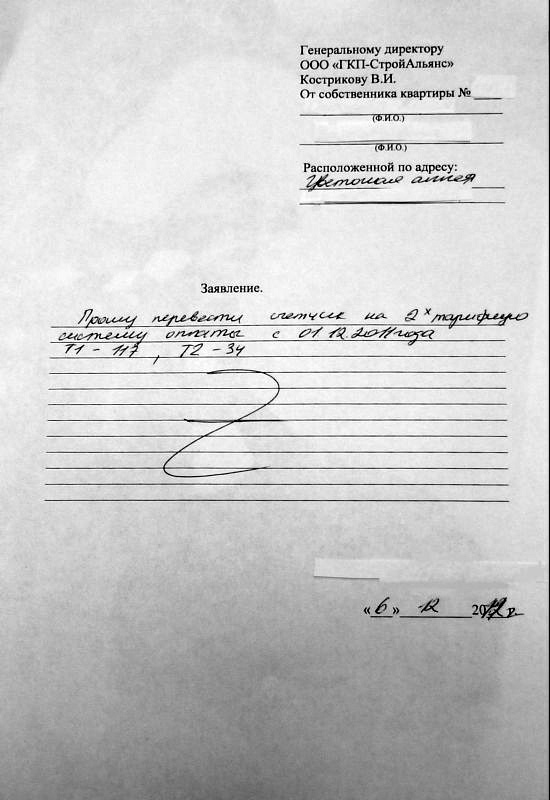 Генеральному директору
ООО «ГКП-СтройАльянс»
Кострикову В.И.
От собственника квартиры №
(Ф.И.О.)
(Ф.И.О.)
Расположенной по адресу:
Цветочная аллея
Заявление.
Прошу перевести счетчик на 2х тарифную
систему оплаты с 01.12.2011 года
Т1 – 117, Т2 – 34
«6» 12 20 г.